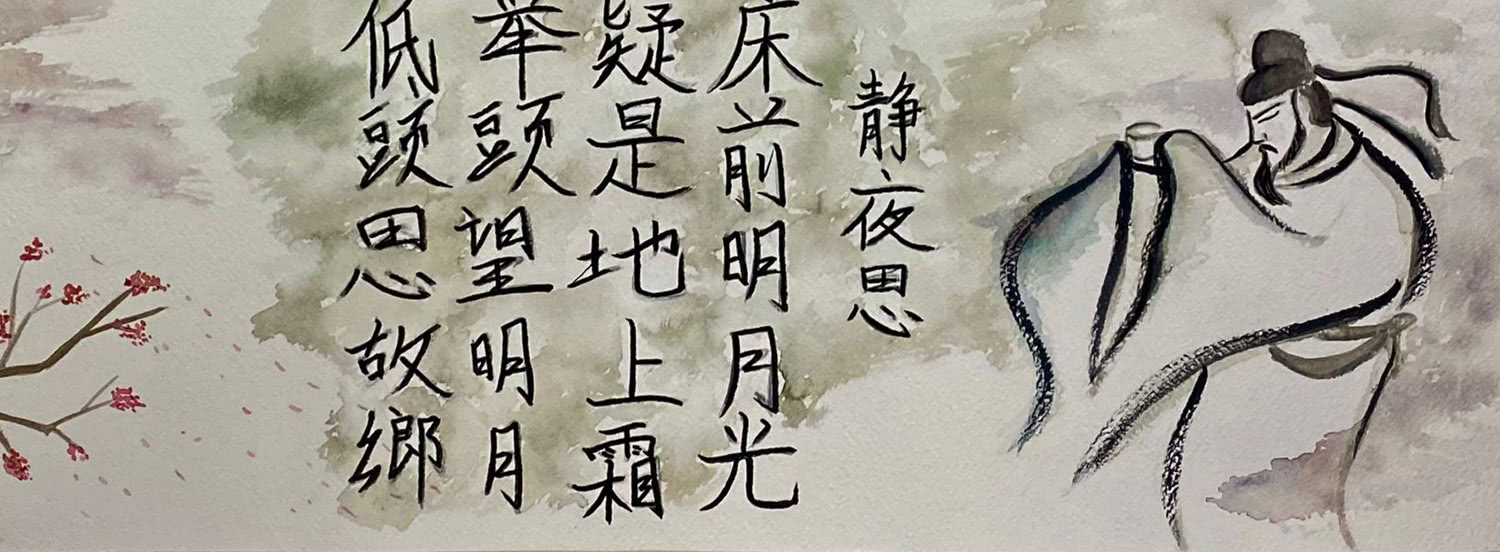 静夜思
床前明月光
疑是地上霜
举頭望明月
低頭思故鄉